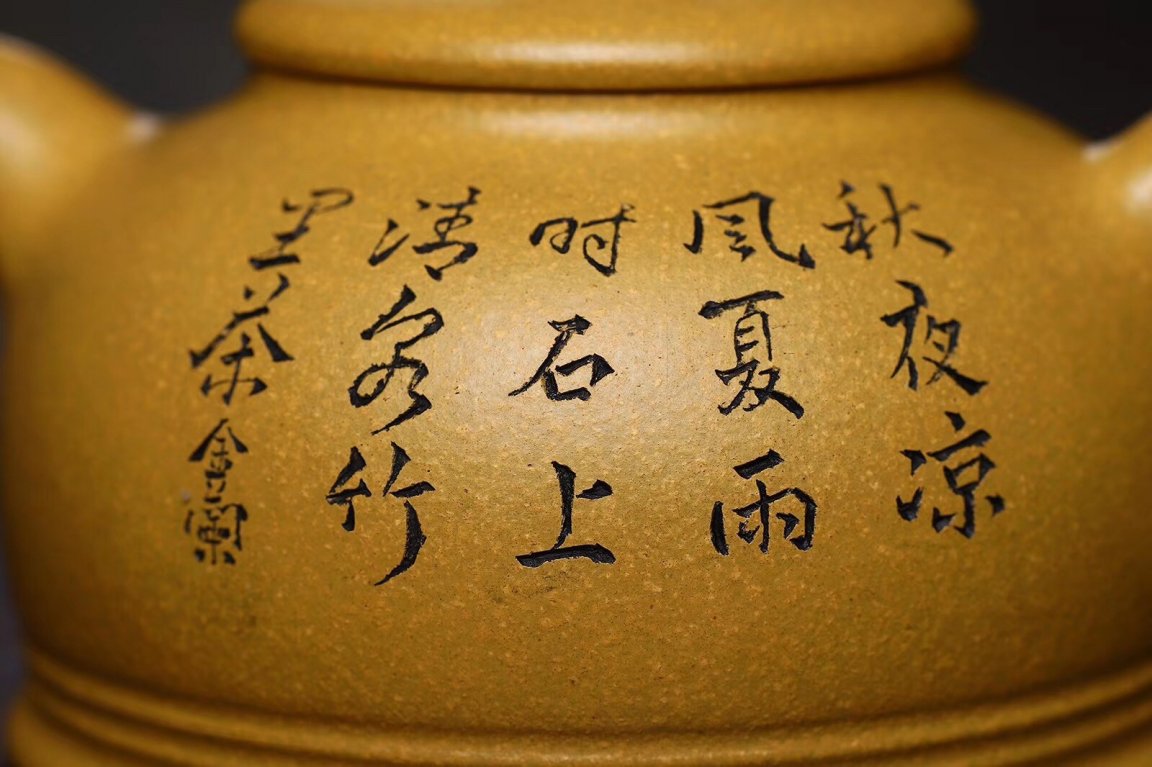 秋夜凉
风夏雨
时石上
清泉竹
里茶